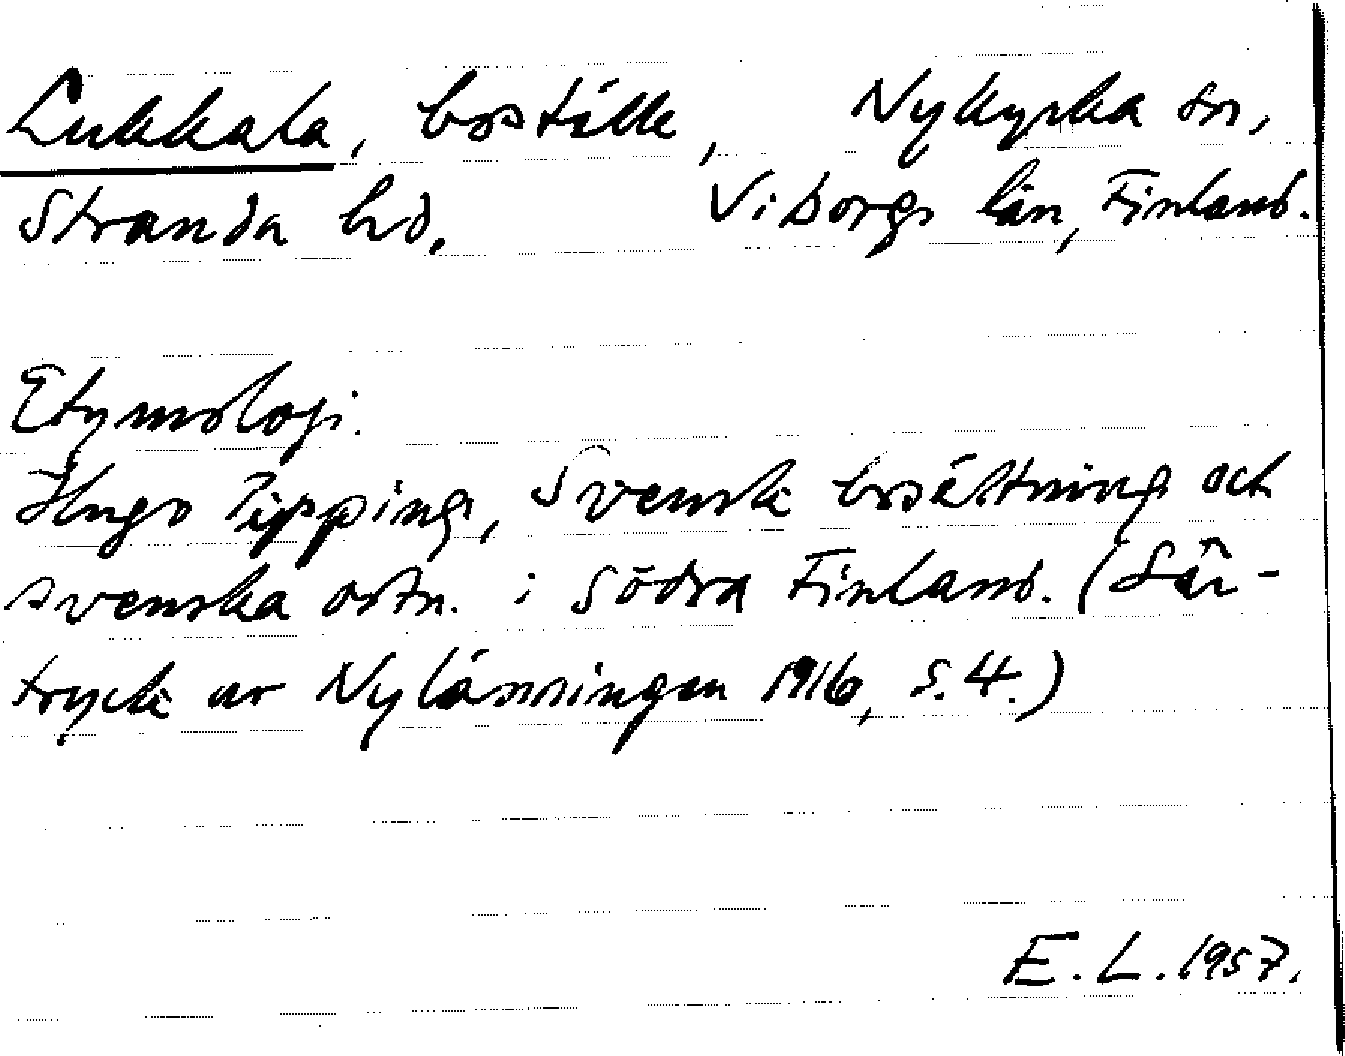 Lukkala, boställe, Nykyrka sn,
Stranda hd. Viborgs län, Finland.
Etymologi.
Hugo Pipping, Svensk bosättning och
svenska ortn. i södra Finland. (Sär-
tryck ur Nylänningen 1916, s. 4.)
E. L. 1957.